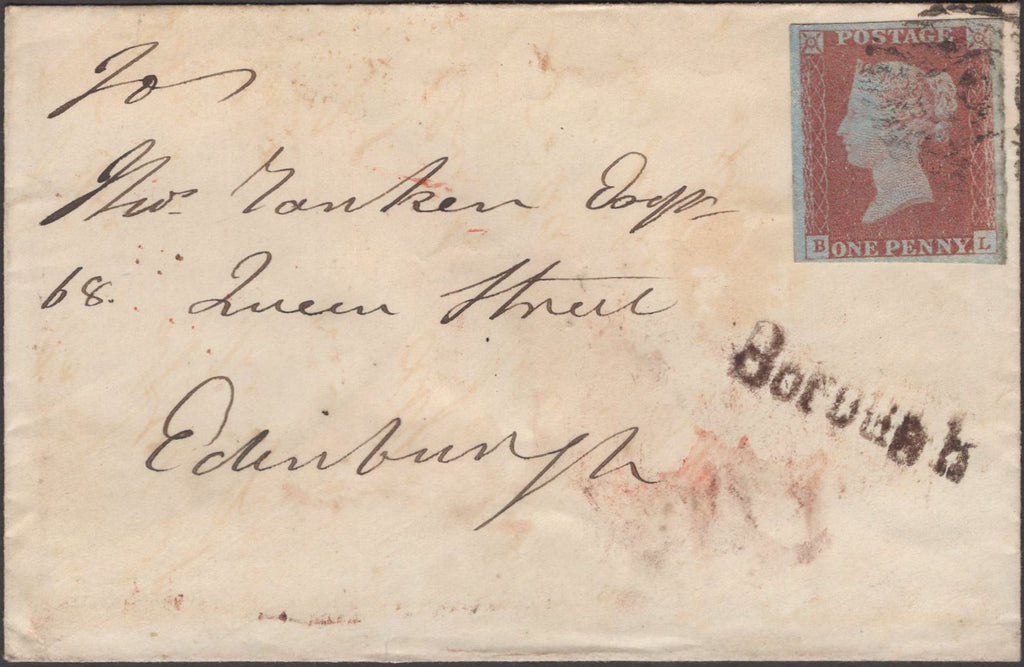 POSTAGE
To
Thos. Ranken Esqr
B ONE PENNY L
68. Queen Street
Borough
Edinburgh